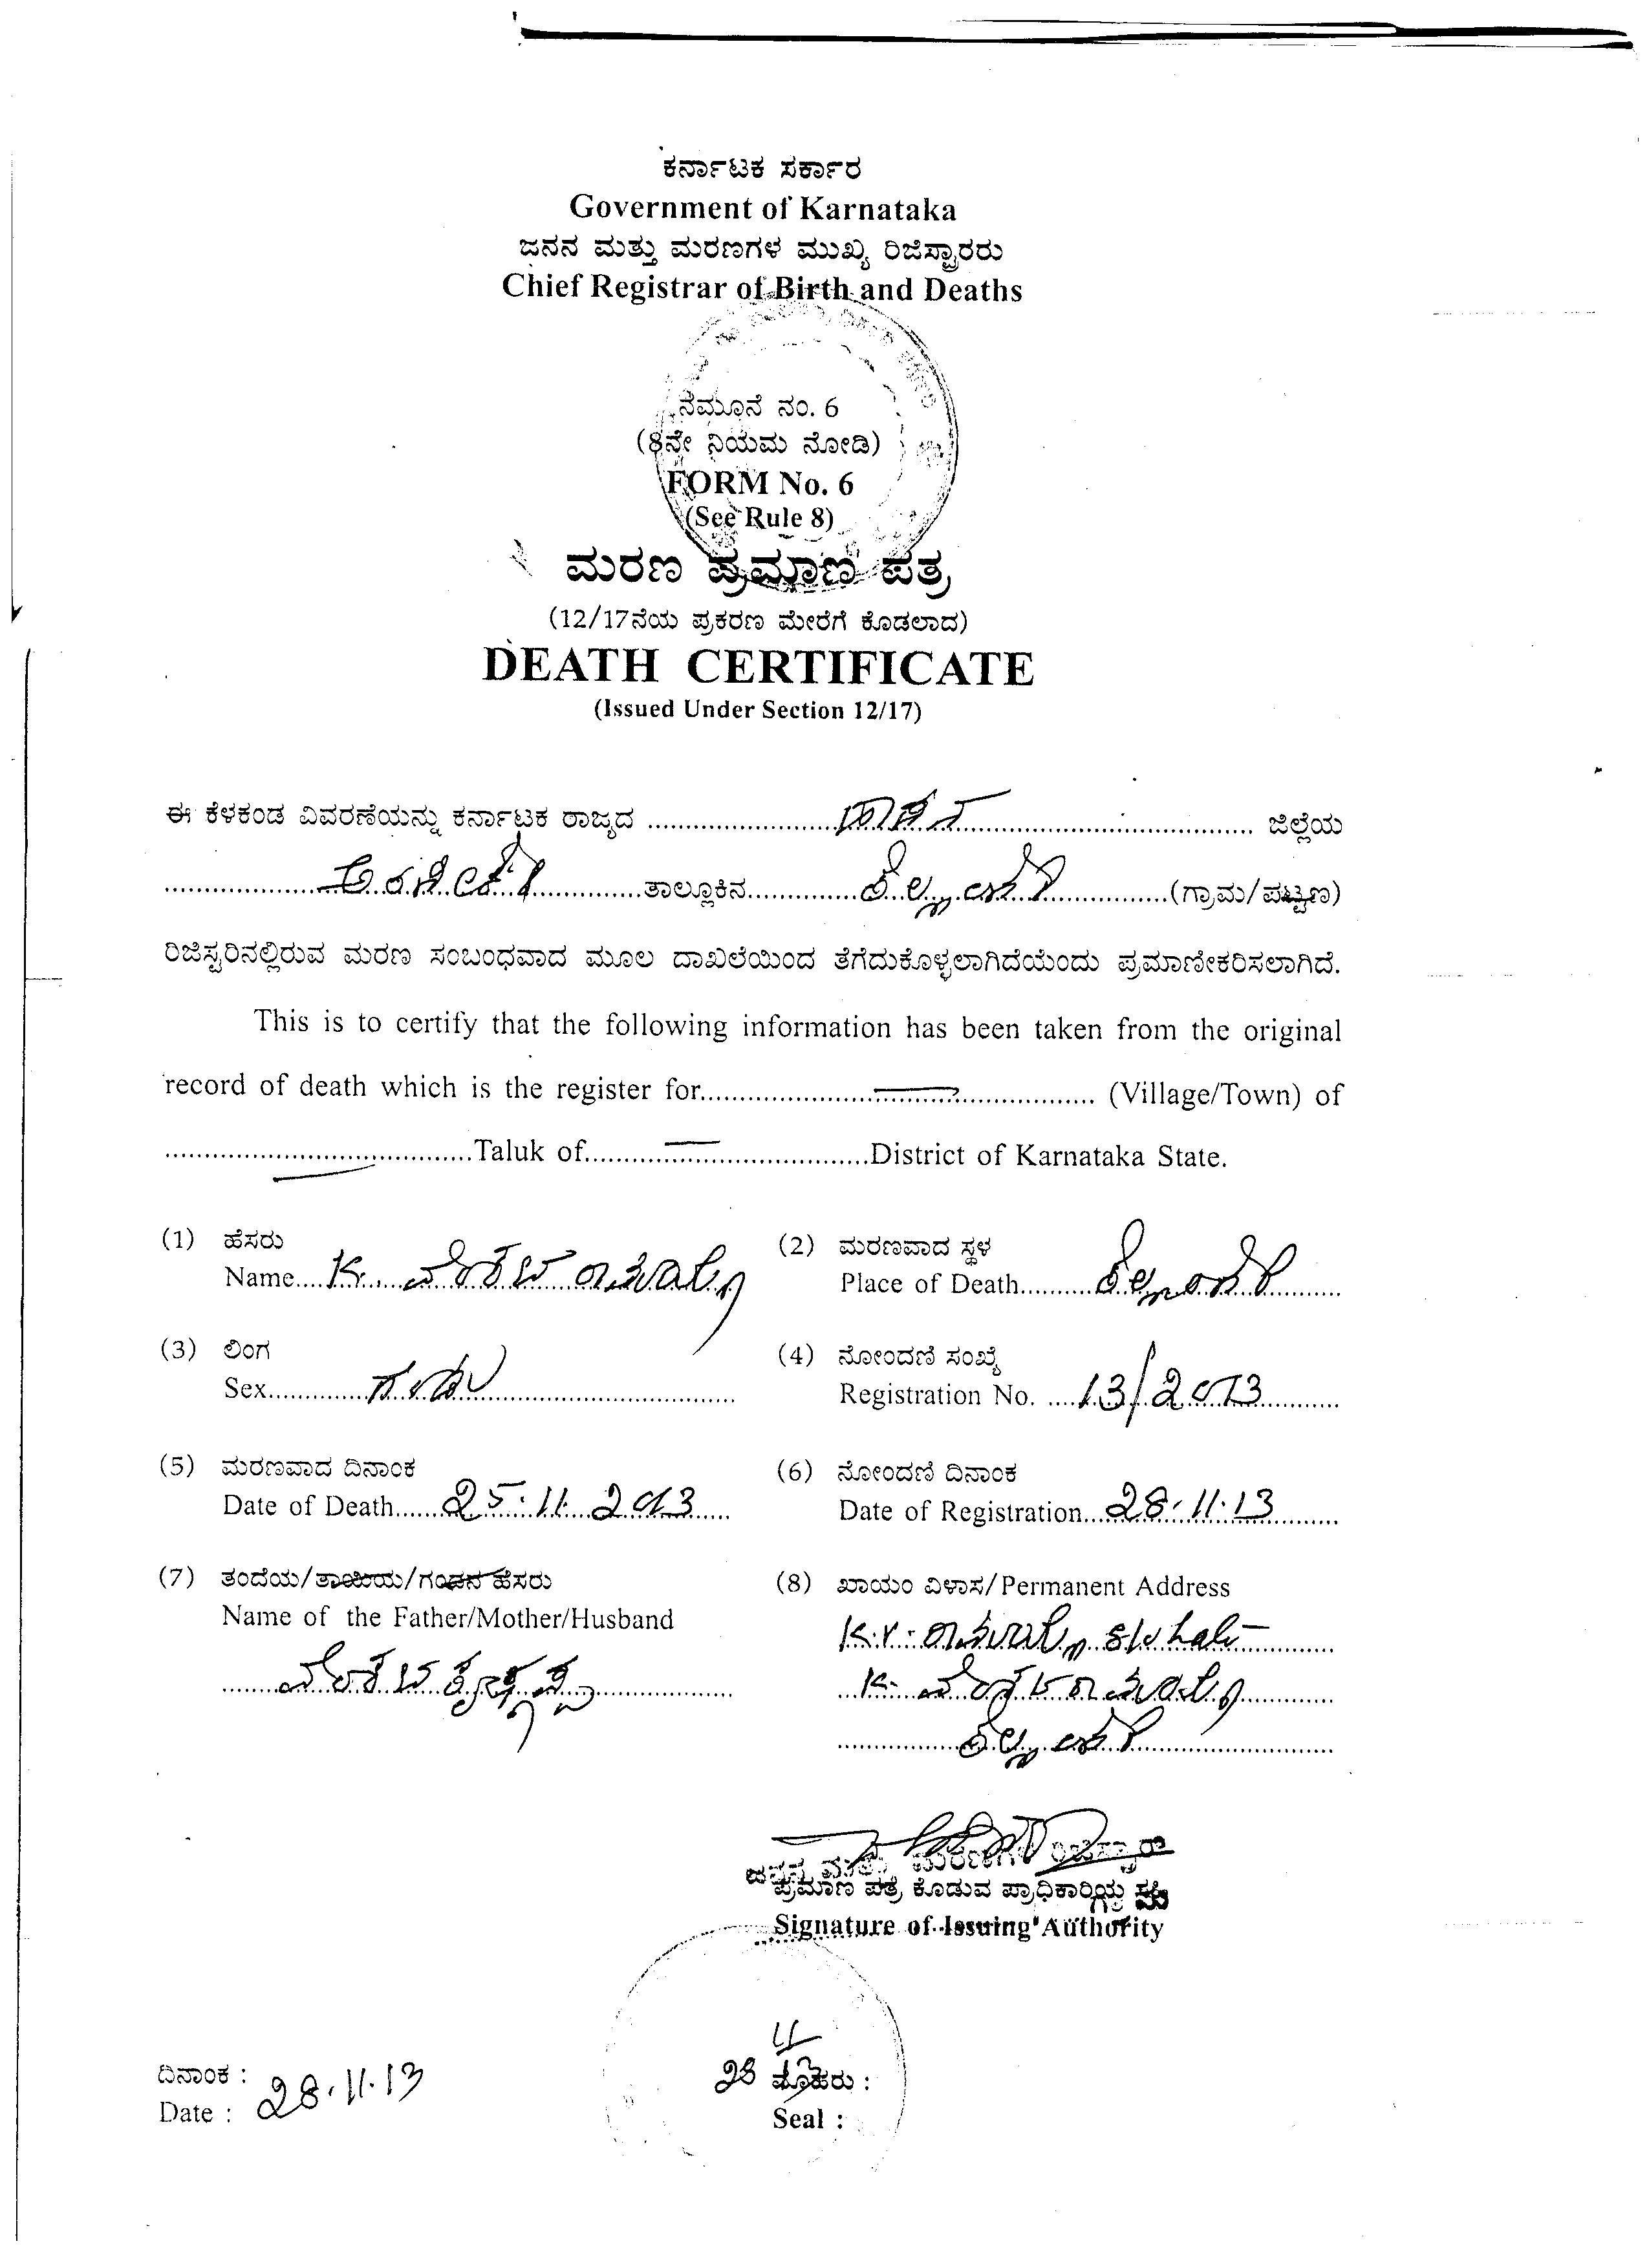 ಕರ್ನಾಟಕ ಸರ್ಕಾರ
Government of Karnataka
ಜನನ ಮತ್ತು ಮರಣಗಳ ಮುಖ್ಯ ರಿಜಿಸ್ಟ್ರಾರರು
Chief Registrar of Birth and Deaths
ನಮೂನೆ ನಂ. 6
(8ನೇ ನಿಯಮ ನೋಡಿ)
FORM No. 6
(See Rule 8)
ಮರಣ ಪ್ರಮಾಣ ಪತ್ರ
(12/17ನೆಯ ಪ್ರಕರಣ ಮೇರೆಗೆ ಕೊಡಲಾದ)
DEATH CERTIFICATE
(Issued Under Section 12/17)
ಈ ಕೆಳಕಂಡ ವಿವರಣೆಯನ್ನು ಕರ್ನಾಟಕ ರಾಜ್ಯದ ಹಾಸನ ಜಿಲ್ಲೆಯ
ತಾಲ್ಲೂಕಿನ (ಗ್ರಾಮ/ಪಟ್ಟಣ)
ರಿಜಿಸ್ಟರಿನಲ್ಲಿರುವ ಮರಣ ಸಂಬಂಧವಾದ ಮೂಲ ದಾಖಲೆಯಿಂದ ತೆಗೆದುಕೊಳ್ಳಲಾಗಿದೆಯೆಂದು ಪ್ರಮಾಣೀಕರಿಸಲಾಗಿದೆ.
This is to certify that the following information has been taken from the original
record of death which is the register for (Village/Town) of
Taluk of District of Karnataka State.
(1) ಹೆಸರು
Name K.
(2) ಮರಣವಾದ ಸ್ಥಳ
Place of Death
(3) ಲಿಂಗ
Sex ಗಂಡು
(4) ನೋಂದಣಿ ಸಂಖ್ಯೆ
Registration No. 13/2013
(5) ಮರಣವಾದ ದಿನಾಂಕ
Date of Death 25.11.2013
(6) ನೋಂದಣಿ ದಿನಾಂಕ
Date of Registration 28.11.13
(7) ತಂದೆಯ/ತಾಯಿಯ/ಗಂಡನ ಹೆಸರು
Name of the Father/Mother/Husband
(8) ಖಾಯಂ ವಿಳಾಸ/Permanent Address
K.V. S/o Late
K.
ಜನನ ಮತ್ತು ಮರಣಗಳ ರಿಜಿಸ್ಟ್ರಾರ್
ಪ್ರಮಾಣ ಪತ್ರ ಕೊಡುವ ಪ್ರಾಧಿಕಾರಿಯ ಸಹಿ
Signature of Issuing Authority
ದಿನಾಂಕ :
Date : 28.11.13
28 ಮೊಹರು :
Seal :